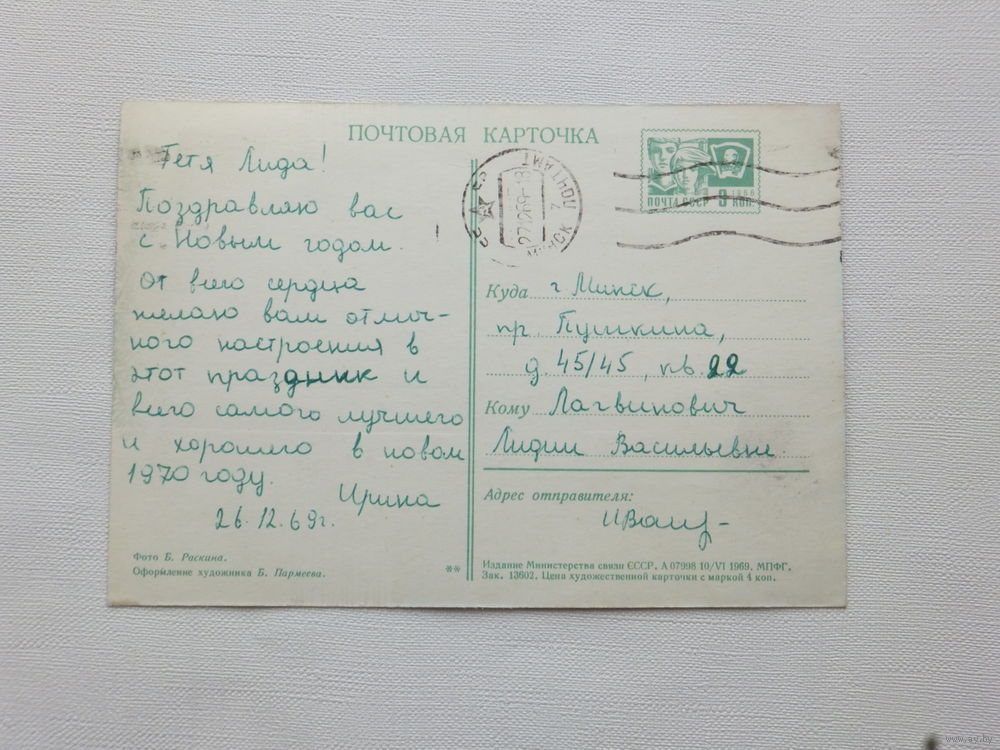 ПОЧТОВАЯ КАРТОЧКА
Тетя Лида!
Поздравляю вас
с Новым годом.
От всего сердца
желаю вам отлич-
ного настроения в
этот праздник и
всего самого лучшего
и хорошего в новом
1970 году.
Ирина
26.12.69г.
Фото Б. Раскина.
Оформление художника Б. Пармеева.
**
СССР
МИНСК
ПОЧТАМТ
27.12.69-18
ПОЧТА СССР 3 КОП.
1966
Куда г. Минск,
пр. Пушкина,
д. 45/45, кв. 22
Кому Лагвинович
Лидии Васильевне.
Адрес отправителя:
Издание Министерства связи СССР. А 07998 10/VI 1969. МПФГ.
Зак. 13602. Цена художественной карточки с маркой 4 коп.
www.ay.by